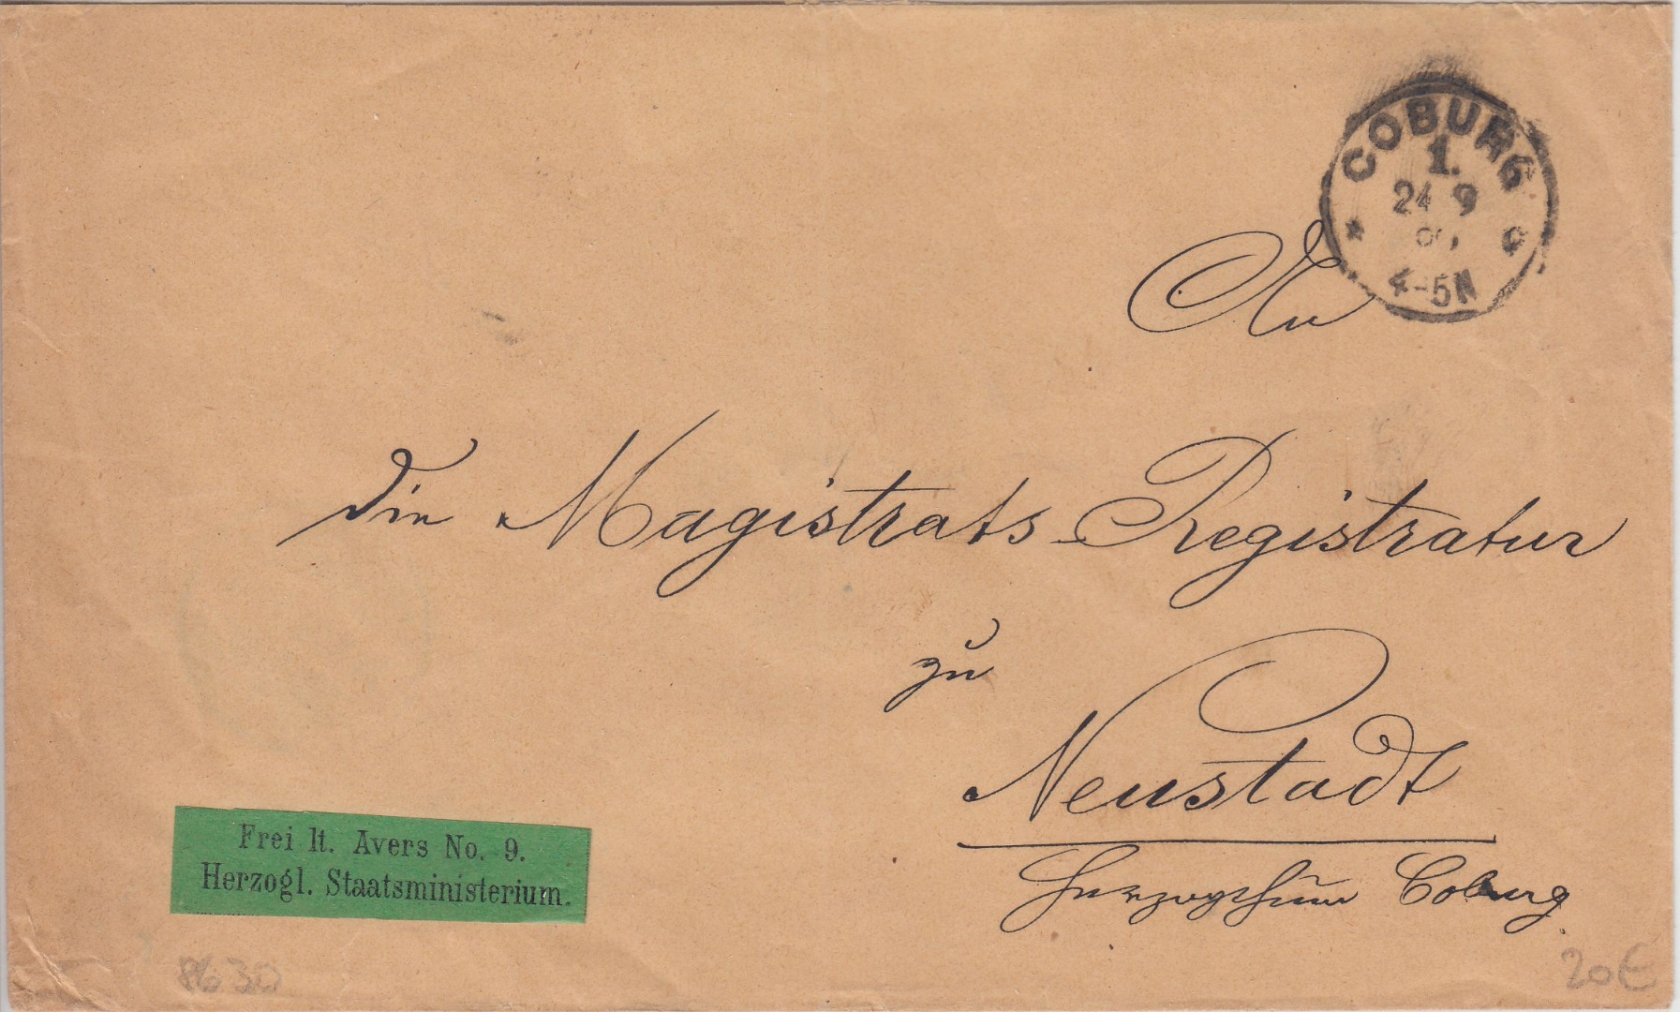 COBURG
1.
24 9
4-5N
An
die Magistrats-Registratur
zu
Neustadt
Herzogthum Coburg
Frei lt. Avers No. 9.
Herzogl. Staatsministerium.
8630
20€